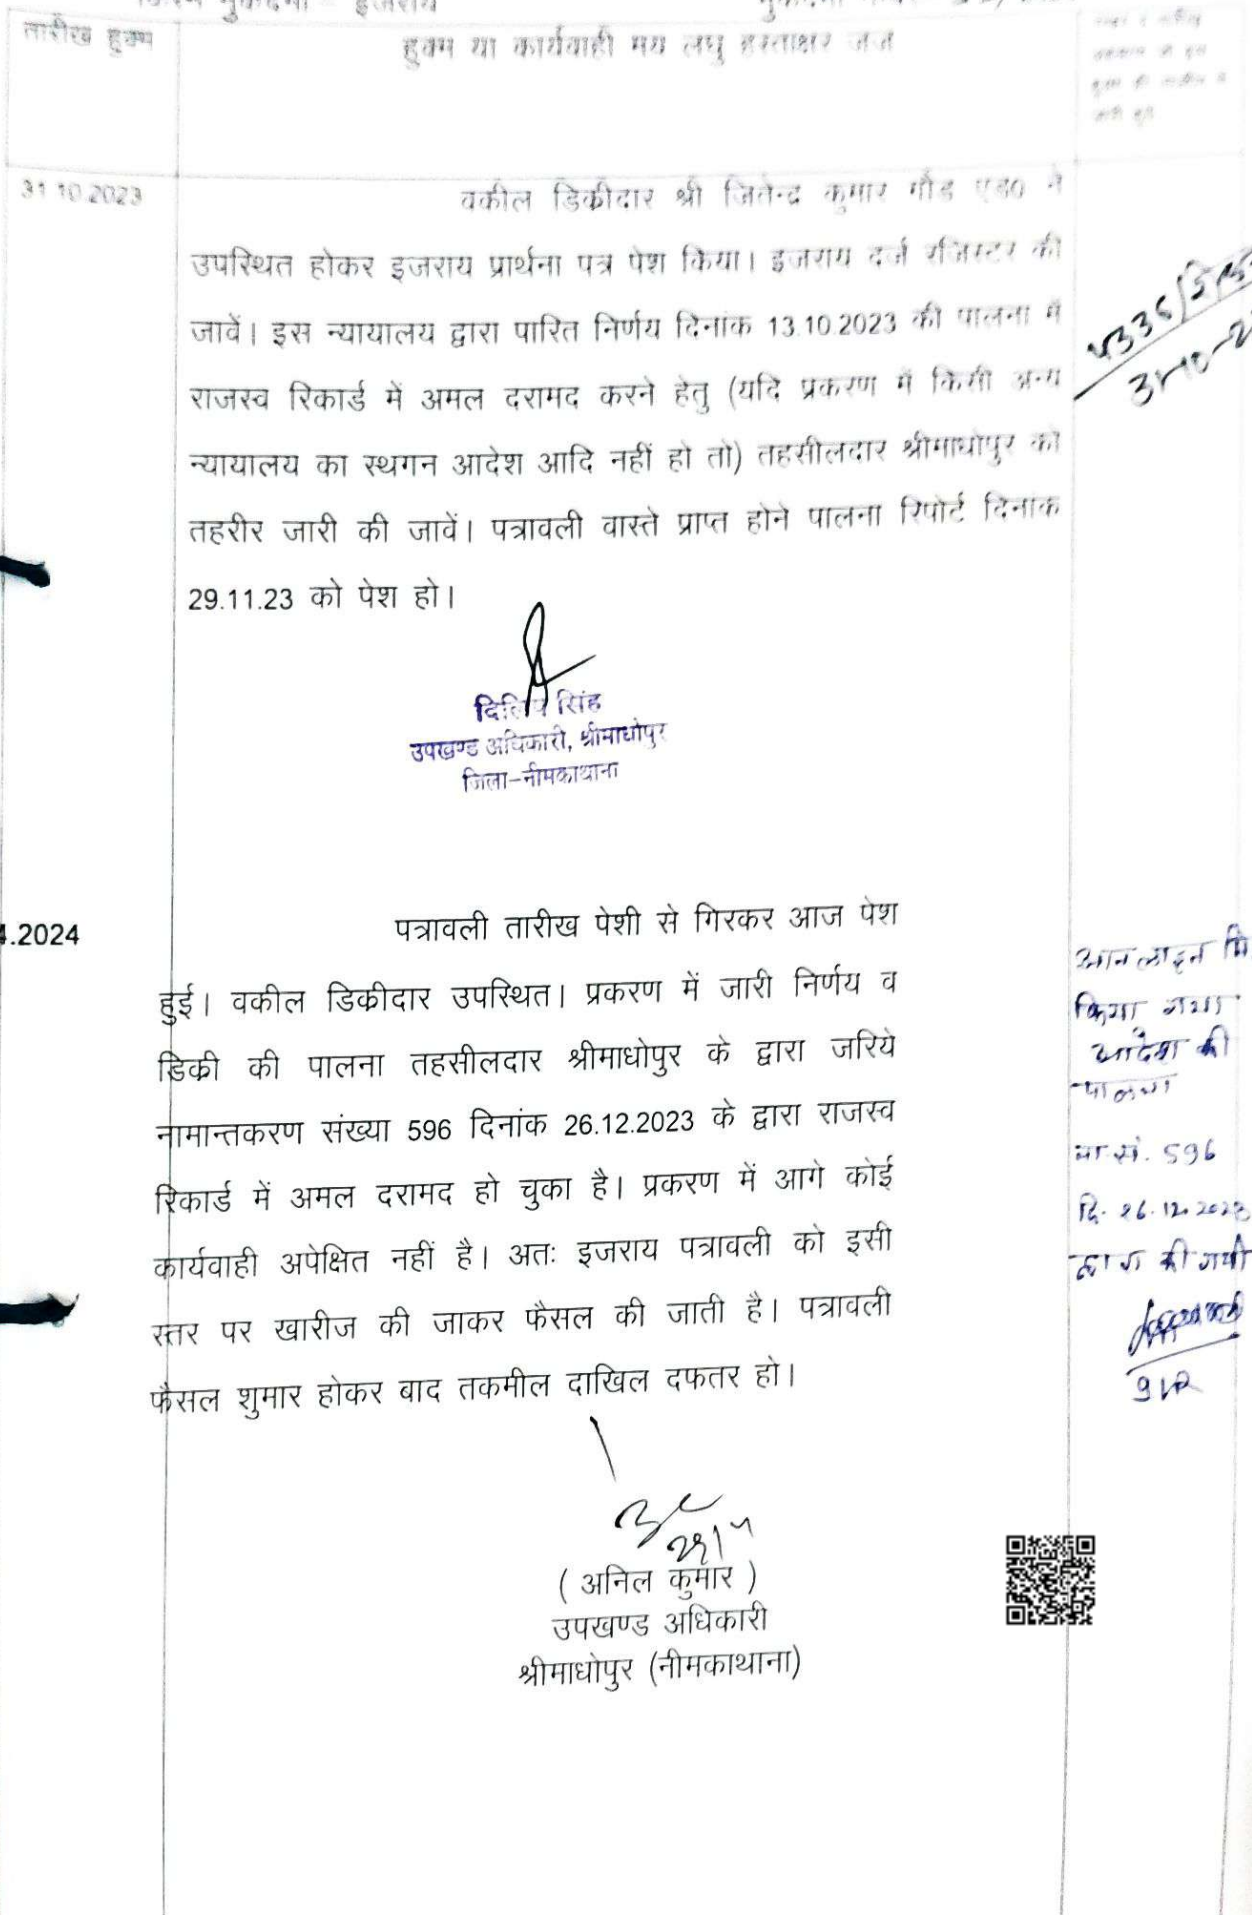 मुकदमा इजराय
तारीख हुक्म
हुक्म या कार्यवाही मय लघु हस्ताक्षर जज
31.10.2023
वकील डिक्रीदार श्री जितेन्द्र कुमार गौड एड0 ने
उपस्थित होकर इजराय प्रार्थना पत्र पेश किया। इजराय दर्ज रजिस्टर की
जावें। इस न्यायालय द्वारा पारित निर्णय दिनांक 13.10.2023 की पालना में
राजस्व रिकार्ड में अमल दरामद करने हेतु (यदि प्रकरण में किसी अन्य
न्यायालय का स्थगन आदेश आदि नहीं हो तो) तहसीलदार श्रीमाधोपुर को
तहरीर जारी की जावें। पत्रावली वास्ते प्राप्त होने पालना रिपोर्ट दिनांक
29.11.23 को पेश हो।
4335
31-10-2
दिलिप सिंह
उपखण्ड अधिकारी, श्रीमाधोपुर
जिला-नीमकाथाना
4.2024
पत्रावली तारीख पेशी से गिरकर आज पेश
हुई। वकील डिक्रीदार उपस्थित। प्रकरण में जारी निर्णय व
डिक्री की पालना तहसीलदार श्रीमाधोपुर के द्वारा जरिये
नामान्तकरण संख्या 596 दिनांक 26.12.2023 के द्वारा राजस्व
रिकार्ड में अमल दरामद हो चुका है। प्रकरण में आगे कोई
कार्यवाही अपेक्षित नहीं है। अतः इजराय पत्रावली को इसी
स्तर पर खारीज की जाकर फैसल की जाती है। पत्रावली
फैसल शुमार होकर बाद तकमील दाखिल दफतर हो।
आनलाइन
किया गया
आदेश की
पालना
ना.सं. 596
दि. 26.12.2023
द्वारा की गयी
( अनिल कुमार )
उपखण्ड अधिकारी
श्रीमाधोपुर (नीमकाथाना)